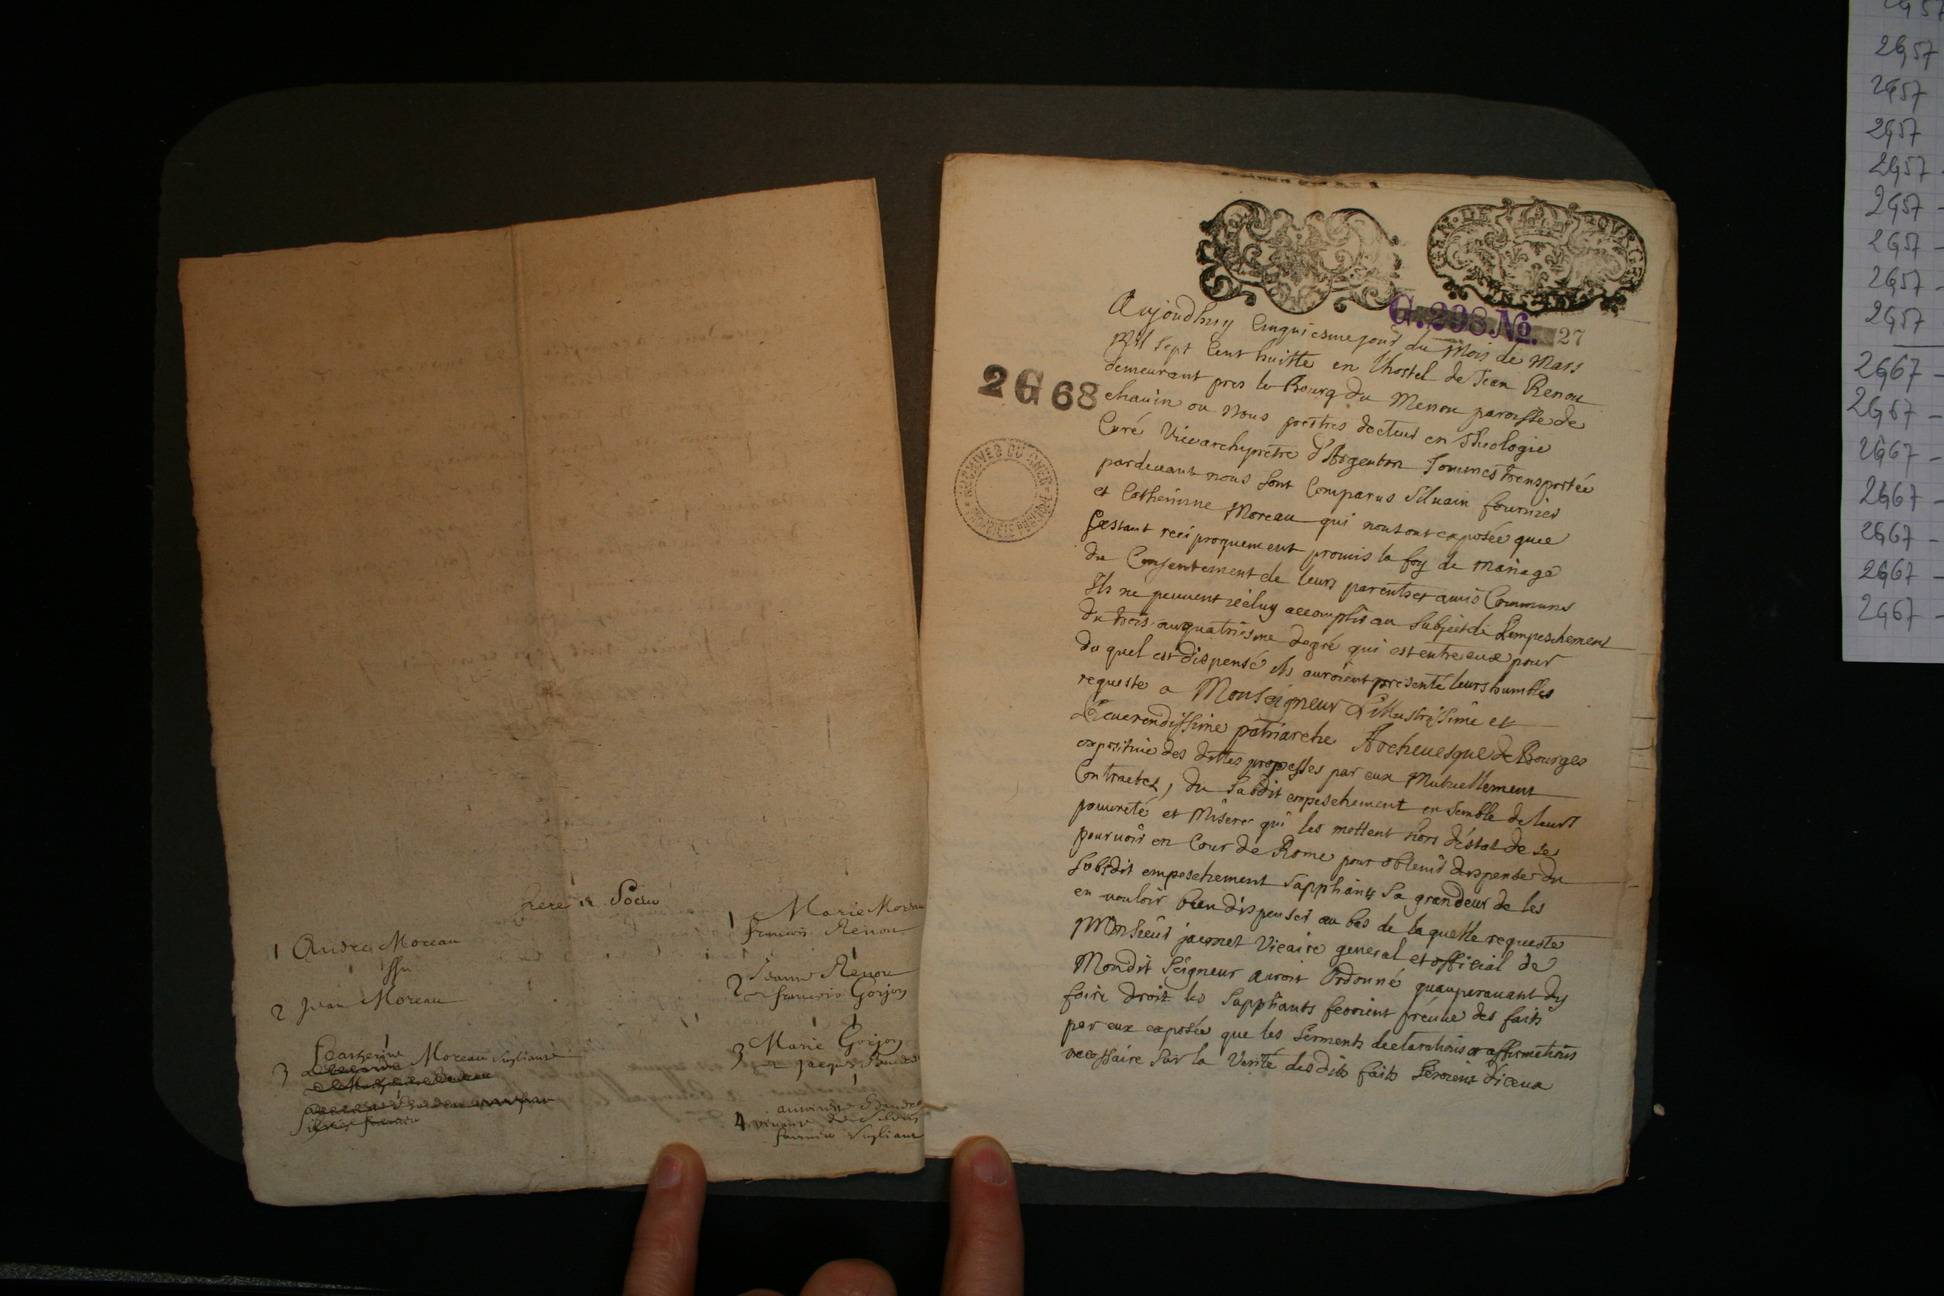 frere et Soeur
1 Andre Moreau
2 Jean Moreau
3 Catherine Moreau Supliante
1 Marie Moreau
francois Renou
2 Jeanne Renou
francois Gorjon
3 Marie Gorjon
Jacques
4
fournier Supliant
GEN. DE BOURGES
G. 298 No. 27
2 G 68
ARCHIVES DU CHER
PROPRIÉTÉ PUBLIQUE
Aujoudhuy Cinquiesme jour du Mois de Mars
Mil Sept Cent huitte en l'hostel de Jean Renou
demeurant pres le Bourg du Menou paroisse de
chavin ou Nous prestres docteur en Theologie
Curé Vicearchipretre d'Argenton Sommes transportée
pardevant nous Sont Comparus Silvain fournier
et Catherinne Moreau qui nous ont exposée que
Sestant reciproquement promis la foy de mariage
du Consentement de leurs parents et amis Communs
Ils ne peuvent iceluy accomplir au Subject de L'empeschement
du trois au quatriesme degré qui est entre eux pour
du quel est dispensé ils auroient presenté leurs humbles
requeste a Monseigneur L'illustrissime et
Reverendissime patriarche Archevesque de Bourges
expositive des dittes promesses par eux Mutuellement
Contractez, du Susdit empeschement ensemble de leurs
pouvreté et Misere qui les mettent hors d'éstat de se
pourvoir en Cour de Rome pour obtenir dispense du
Subsdit empeschement Suppliants Sa grandeur de les
en vouloir bien dispenser au bas de laquelle requeste
Monsieur jacmet Vicaire general et official de
Mondit Seigneur auroit Ordonné quauparavant dy
faire droit les Suppliants feroient preuve des faits
par eux exposée que les Serments declarations et affirmations
necessaire Sur la Verité desdits faits Seroient d'iceux
2G57
2G57
2G57
2G57
2G57 -
2G57 -
2G57 -
2G57 -
2G57
2G67 -
2G67 -
2G67 -
2G67 -
2G67 -
2G67 -
2G67 -